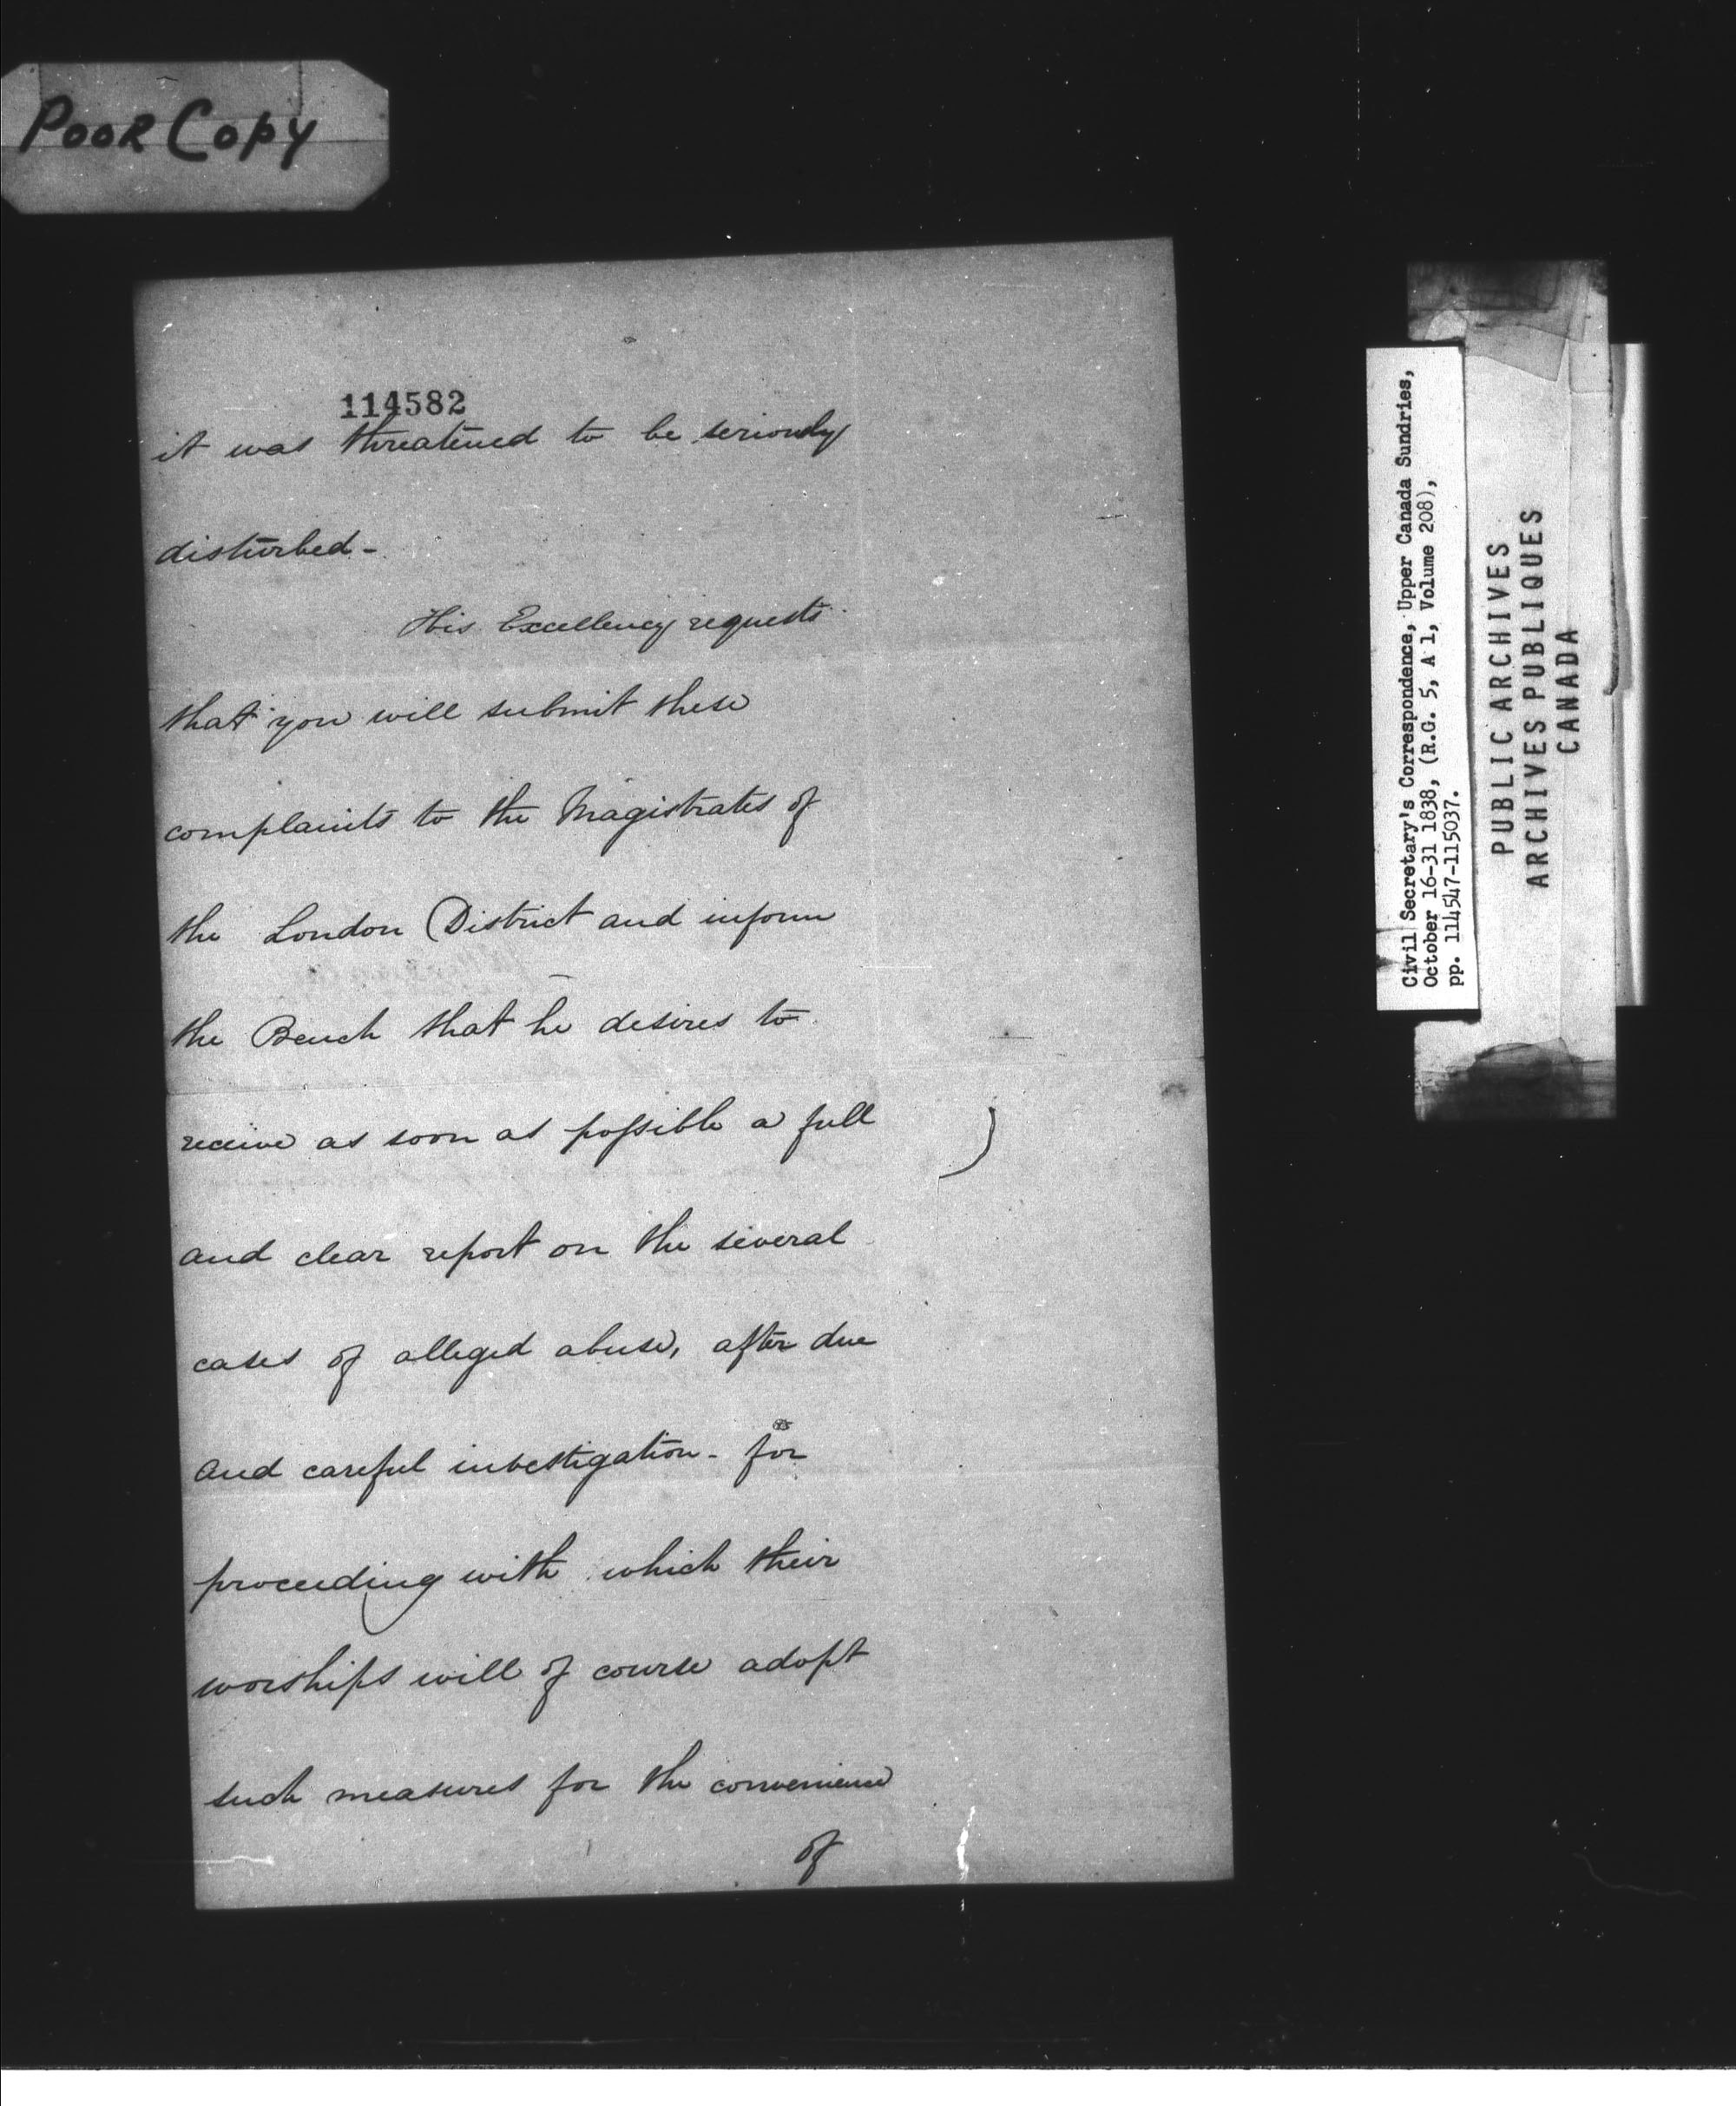 Poor Copy
114582
it was threatened to be seriously
disturbed -
His Excellency requests
that you will submit these
complaints to the Magistrates of
the London District and inform
the Bench that he desires to
receive as soon as possible a full
and clear report on the several
cases of alleged abuse, after due
and careful investigation - for
proceeding with which their
worships will of course adopt
such measures for the convenience
of
Civil Secretary's Correspondence, Upper Canada Sundries,
October 16-31 1838, (R.G. 5, A 1, Volume 208),
pp. 114547-115037.
PUBLIC ARCHIVES
ARCHIVES PUBLIQUES
CANADA